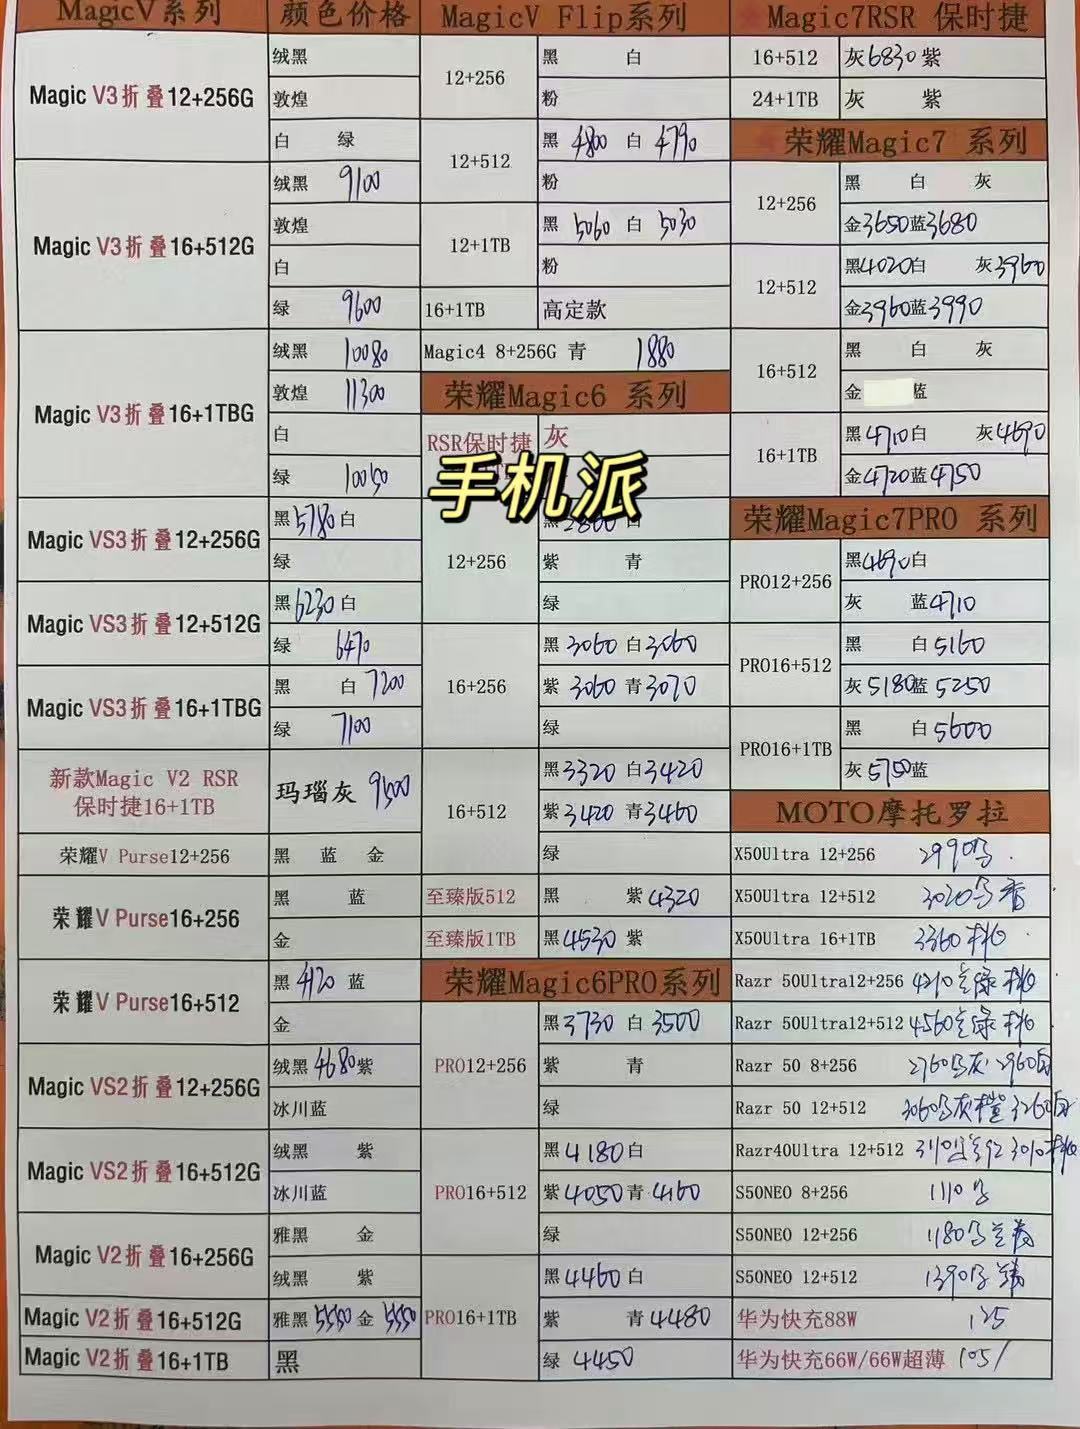 MagicV系列 颜色价格
Magic V3折叠12+256G
绒黑
敦煌
白 绿
Magic V3折叠16+512G
绒黑 9100
敦煌
白
绿 9600
Magic V3折叠16+1TBG
绒黑 10080
敦煌 11300
白
绿 10050
Magic VS3折叠12+256G
黑5780白
绿
Magic VS3折叠12+512G
黑6230白
绿 6470
Magic VS3折叠16+1TBG
黑 白7200
绿 7100
新款Magic V2 RSR
保时捷16+1TB
玛瑙灰 9500
荣耀V Purse12+256 黑 蓝 金
荣耀V Purse16+256
黑 蓝
金
荣耀V Purse16+512
黑4120 蓝
金
Magic VS2折叠12+256G
绒黑4680紫
冰川蓝
Magic VS2折叠16+512G
绒黑 紫
冰川蓝
Magic V2折叠16+256G
雅黑 金
绒黑 紫
Magic V2折叠16+512G 雅黑5550金5550
Magic V2折叠16+1TB 黑
MagicV Flip系列
12+256
黑 白
粉
12+512
黑 4800 白 4790
粉
12+1TB
黑 5060 白 5030
粉
16+1TB 高定款
Magic4 8+256G 青 1880
荣耀Magic6 系列
RSR保时捷 灰
手机派
12+256
白
紫 青
绿
16+256
黑 3060 白3060
紫 3060 青3070
绿
16+512
黑3320 白3420
紫3420 青3460
绿
至臻版512 黑 紫4320
至臻版1TB 黑4530 紫
荣耀Magic6PRO系列
PRO12+256
黑3730 白 3500
紫 青
绿
PRO16+512
黑4180白
紫4050青 4160
绿
PRO16+1TB
黑4460白
紫 青4480
绿 4450
Magic7RSR 保时捷
16+512 灰6830紫
24+1TB 灰 紫
荣耀Magic7 系列
12+256
黑 白 灰
金3650蓝3680
12+512
黑4020白 灰3960
金3960蓝3990
16+512
黑 白 灰
金 蓝
16+1TB
黑4710白 灰4690
金4720蓝4750
荣耀Magic7PRO 系列
PRO12+256
黑4690白
灰 蓝4710
PRO16+512
黑 白5160
灰5180蓝5250
PRO16+1TB
黑 白5600
灰5750蓝
MOTO摩托罗拉
X50Ultra 12+256 2990
X50Ultra 12+512 3020
X50Ultra 16+1TB 3360
Razr 50Ultra12+256 4210
Razr 50Ultra12+512 4560
Razr 50 8+256 2760 灰 2960白
Razr 50 12+512 3060 灰 3260白
Razr40Ultra 12+512 3010
S50NEO 8+256 1110
S50NEO 12+256 1180
S50NEO 12+512 1390
华为快充88W 125
华为快充66W/66W超薄 105/